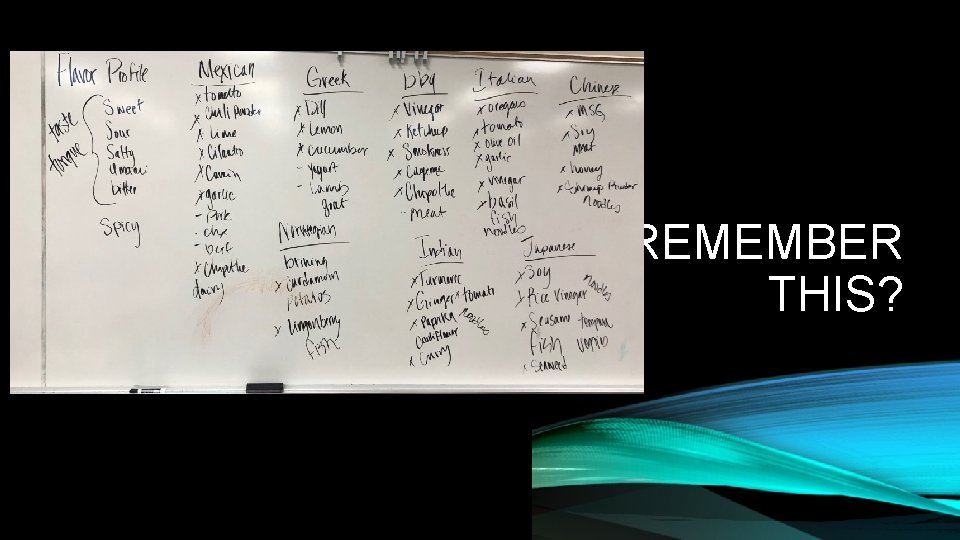 Flavor Profile
taste
tongue
Sweet
Sour
Salty
Umami
bitter
Spicy
Mexican
x tomato
x Chili Powder
x Lime
x Cilantro
x Cumin
x garlic
- Pork
- beef
x Chipotle
dairy
Greek
x Dill
x Lemon
x cucumber
- Yogurt
- Lamb
goat
Norwegian
brining
x cardamom
potatos
x Lingonberry
fish
BBQ
x Vinegar
x Ketchup
x Smokness
x Cayenne
x Chipotle
- meat
Indian
x Turmeric
x Ginger x tomato
x Paprika noodles
Cauliflower
x Curry
Italian
x oregano
x tomato
x olive oil
x garlic
x vinegar
x basil
fish
noodles
Japanese
x Soy
x Rice Vinegar noodles
x Seasame tempura
fish
x Seaweed
Chinese
x MSG
x Soy
meat
x honey
noodles
REMEMBER
THIS?